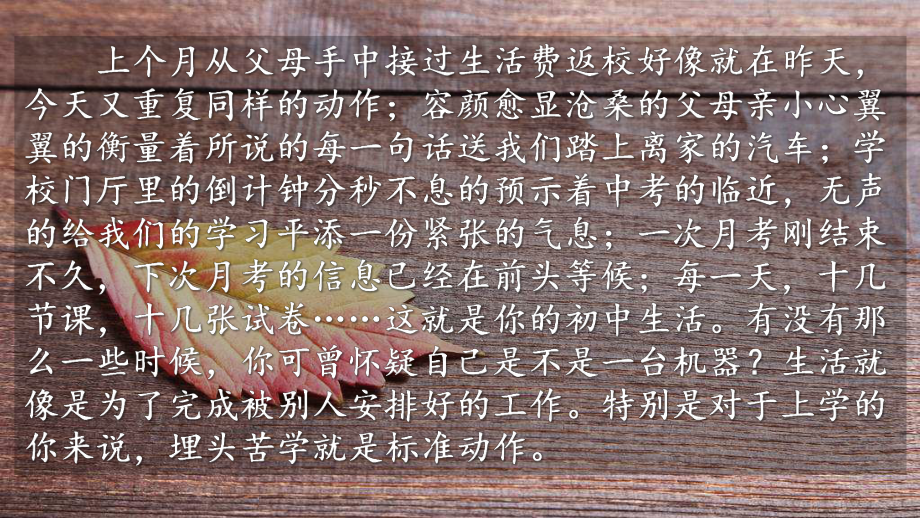 上个月从父母手中接过生活费返校好像就在昨天，
今天又重复同样的动作；容颜愈显沧桑的父母亲小心翼
翼的衡量着所说的每一句话送我们踏上离家的汽车；学
校门厅里的倒计钟分秒不息的预示着中考的临近，无声
的给我们的学习平添一份紧张的气息；一次月考刚结束
不久，下次月考的信息已经在前头等候；每一天，十几
节课，十几张试卷……这就是你的初中生活。有没有那
么一些时候，你可曾怀疑自己是不是一台机器？生活就
像是为了完成被别人安排好的工作。特别是对于上学的
你来说，埋头苦学就是标准动作。